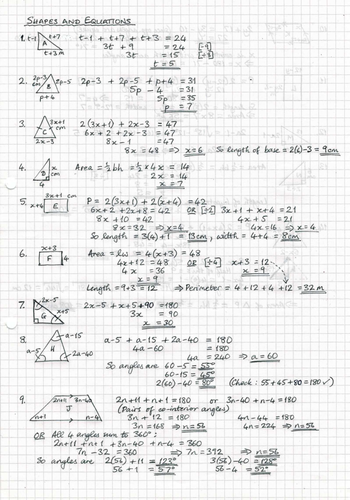 SHAPES AND EQUATIONS
1. t-1 t+7 A t+3 m t-1 + t+7 + t+3 = 24
3t + 9 = 24 [-9]
3t = 15 [÷3]
t = 5
2. 2p-3 cm B 2p-5 p+4 2p-3 + 2p-5 + p+4 = 31
5p - 4 = 31
5p = 35
p = 7
3. C 3x+1 cm 2x-3 2(3x+1) + 2x-3 = 47
6x + 2 + 2x - 3 = 47
8x - 1 = 47
8x = 48 ⇒ x=6 So length of base = 2(6)-3 = 9cm
4. D x cm 4 Area = ½bh = ½ × 4x = 14
2x = 14
x = 7
5. 3x+1 cm x+4 E P = 2(3x+1) + 2(x+4) = 42
6x+2 + 2x+8 = 42 OR [÷2] 3x+1 + x+4 = 21
8x + 10 = 42 4x + 5 = 21
8x = 32 ⇒ x=4 4x = 16 ⇒ x=4
So length = 3(4)+1 = 13cm, width = 4+4 = 8cm
6. x+3 F 4 Area = lw = 4(x+3) = 48
4x+12 = 48 OR [÷4] x+3 = 12
4x = 36 x = 9
x = 9
Length = 9+3 = 12 ⇒ Perimeter = 4+12+4+12 = 32m
7. 2x-5 G x+5 2x-5 + x+5 + 90 = 180
3x = 90
x = 30
8. a-15 a-5 H 2a-40 a-5 + a-15 + 2a-40 = 180
4a - 60 = 180
4a = 240 ⇒ a=60
So angles are 60-5 = 55°
60-15 = 45°
2(60)-40 = 80° (Check: 55+45+80 = 180 ✓)
9. 2n+11 3n-40 J n+1 n-4 2n+11 + n+1 = 180 or 3n-40 + n-4 = 180
(Pairs of co-interior angles)
3n + 12 = 180 4n - 44 = 180
3n = 168 ⇒ n=56 4n = 224 ⇒ n=56
OR All 4 angles sum to 360°:
2n+11 + n+1 + 3n-40 + n-4 = 360
7n - 32 = 360 ⇒ 7n = 392 ⇒ n=56
So angles are 2(56)+11 = 123° 3(56)-40 = 128°
56+1 = 57° 56-4 = 52°